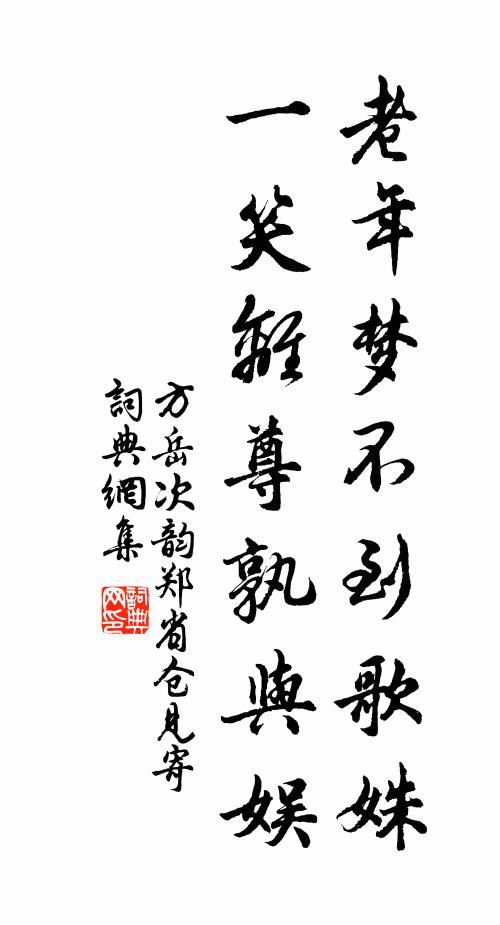 老年梦不到歌姝
一笑離尊孰與娱
方岳次韵郑省仓見寄
詞典網集
詞典网印